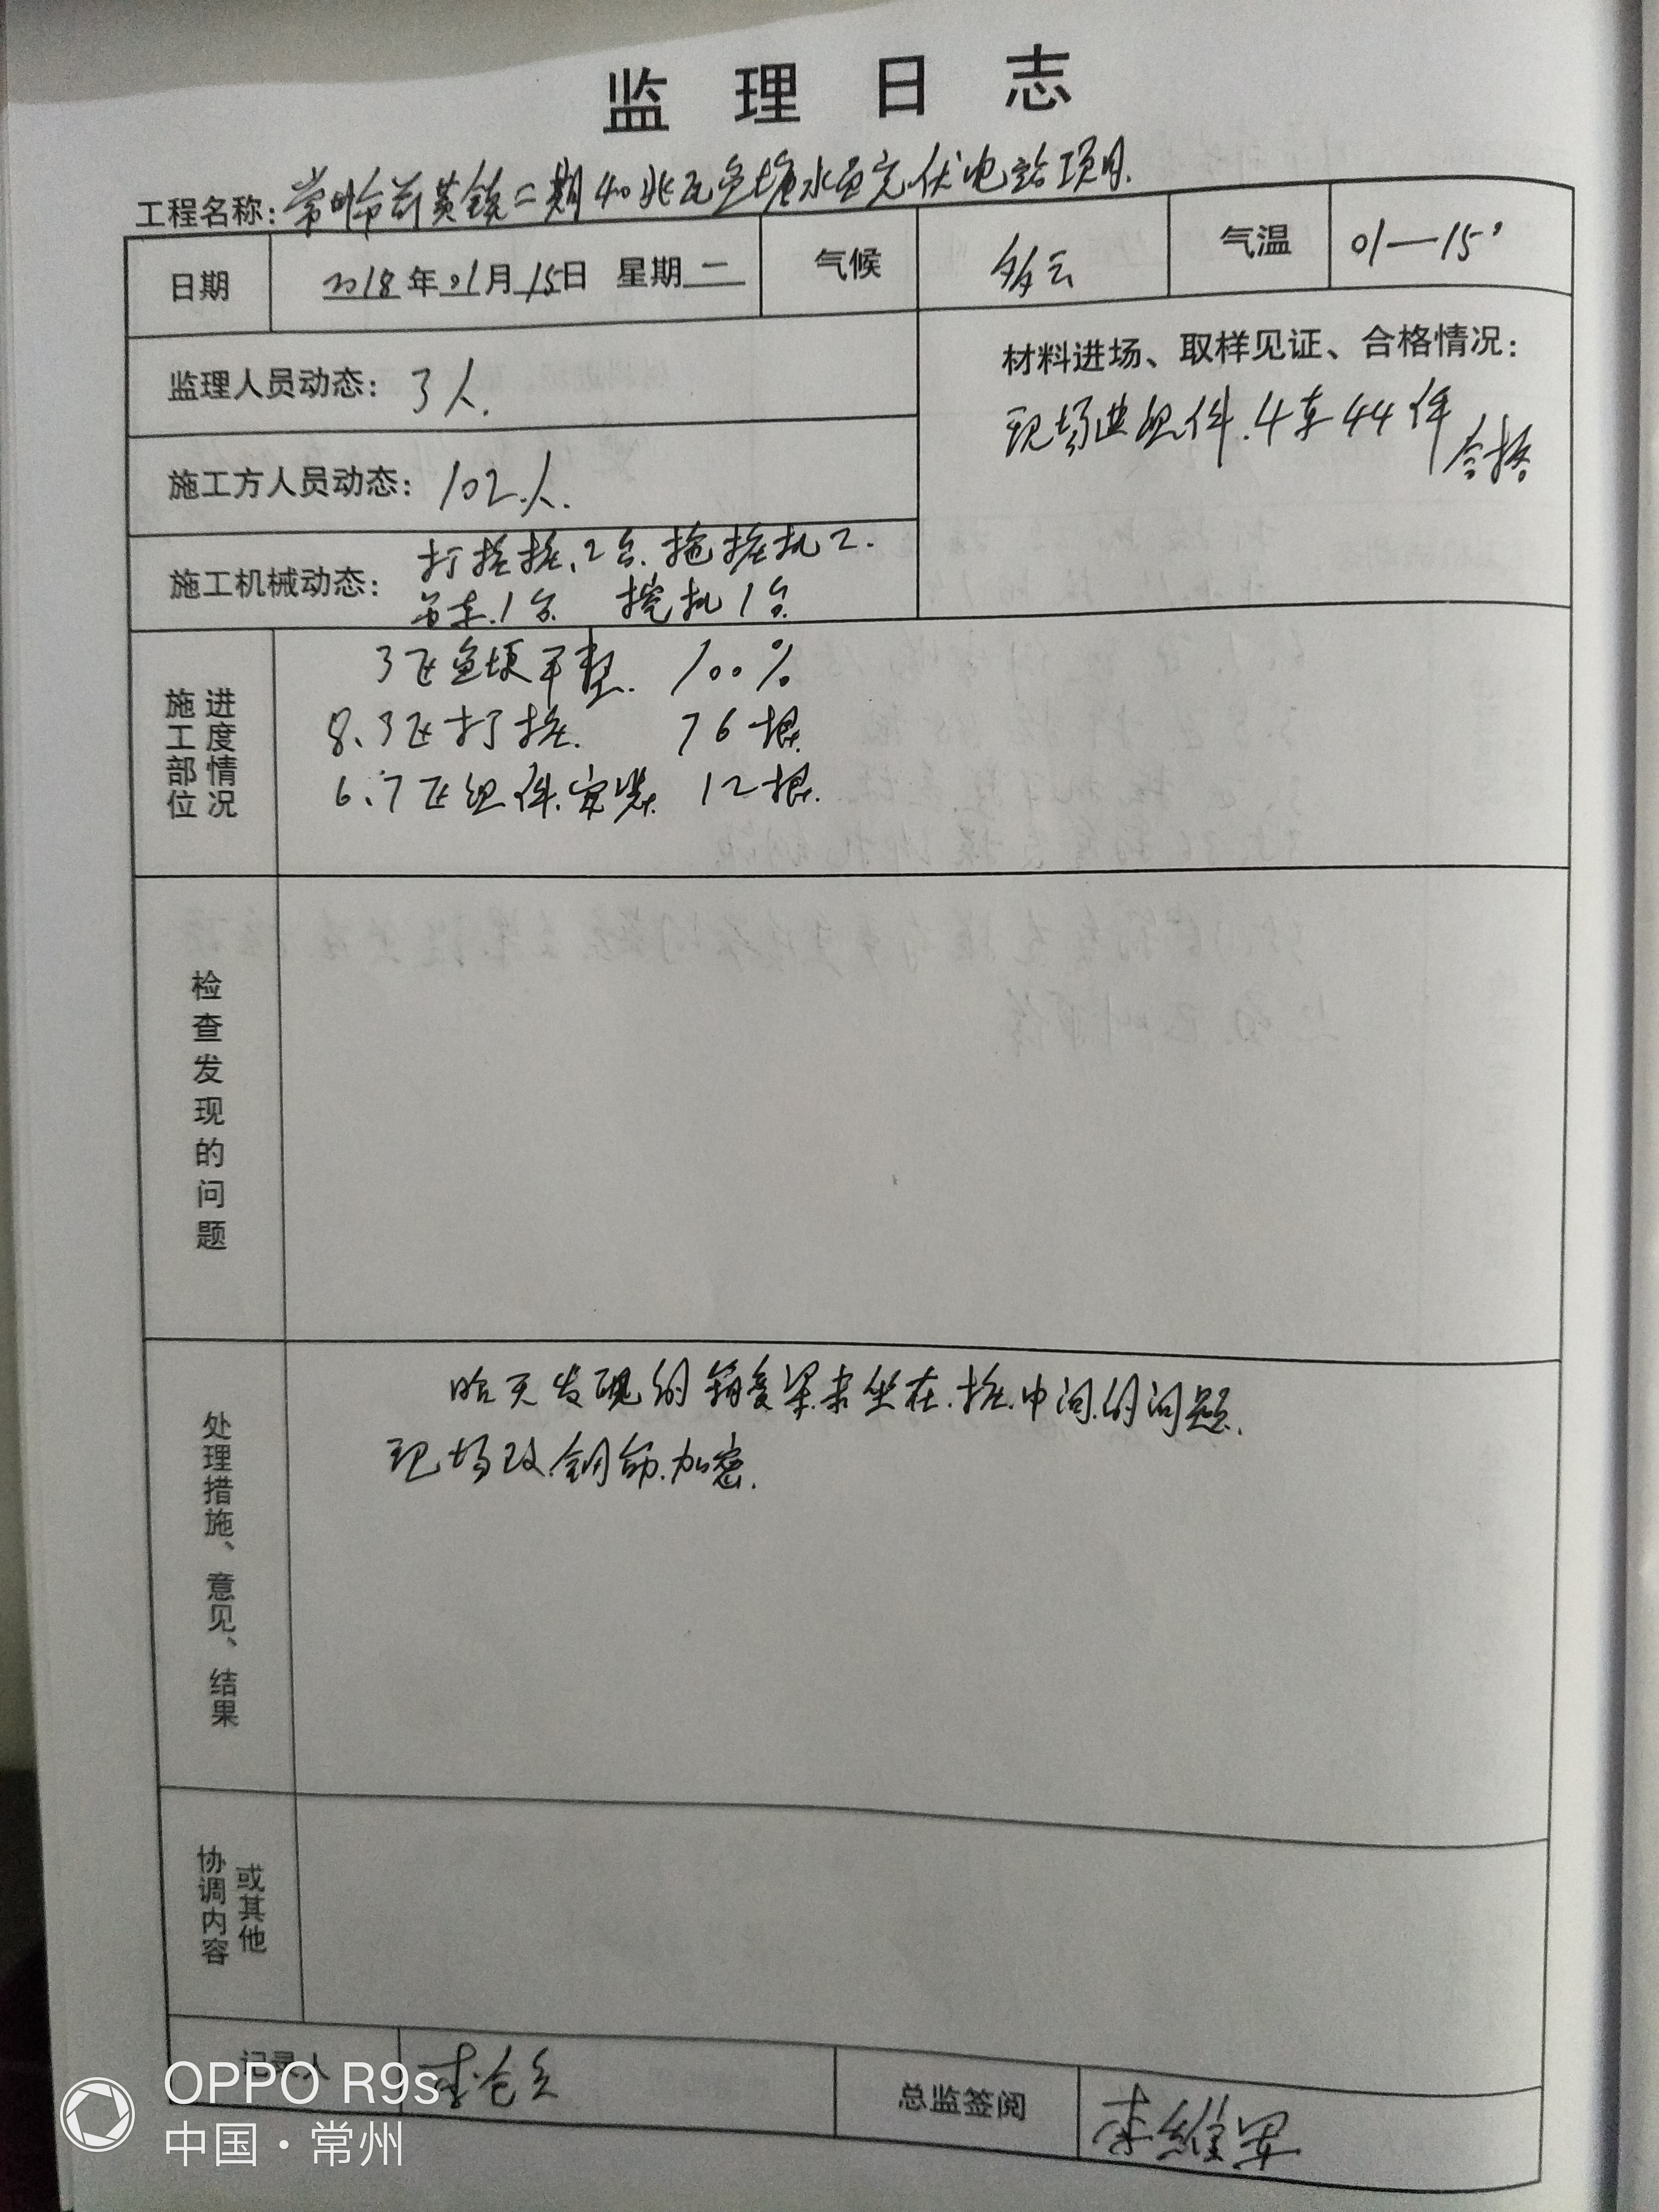 监理日志
工程名称: 常州市前黄镇二期40兆瓦鱼塘水面光伏电站项目.
日期 2018年01月15日 星期二 气候 多云 气温 01—15°
监理人员动态: 3人.
材料进场、取样见证、合格情况:
现场进组件.4车44件
合格
施工方人员动态: 102人.
施工机械动态: 打桩桩、2台.拖桩机2.
吊车.1台 挖机1台
施工部位 进度情况
3区鱼埂平整. 100%
8、3区打桩. 76根.
6、7区组件.安装. 12根.
检查发现的问题
处理措施、意见、结果
昨天发现的 梁.未坐在.桩.中间.的问题.
现场改.钢筋.加密.
协调内容 或其他
记录人 李
总监签阅 李维军
OPPO R9s
中国·常州